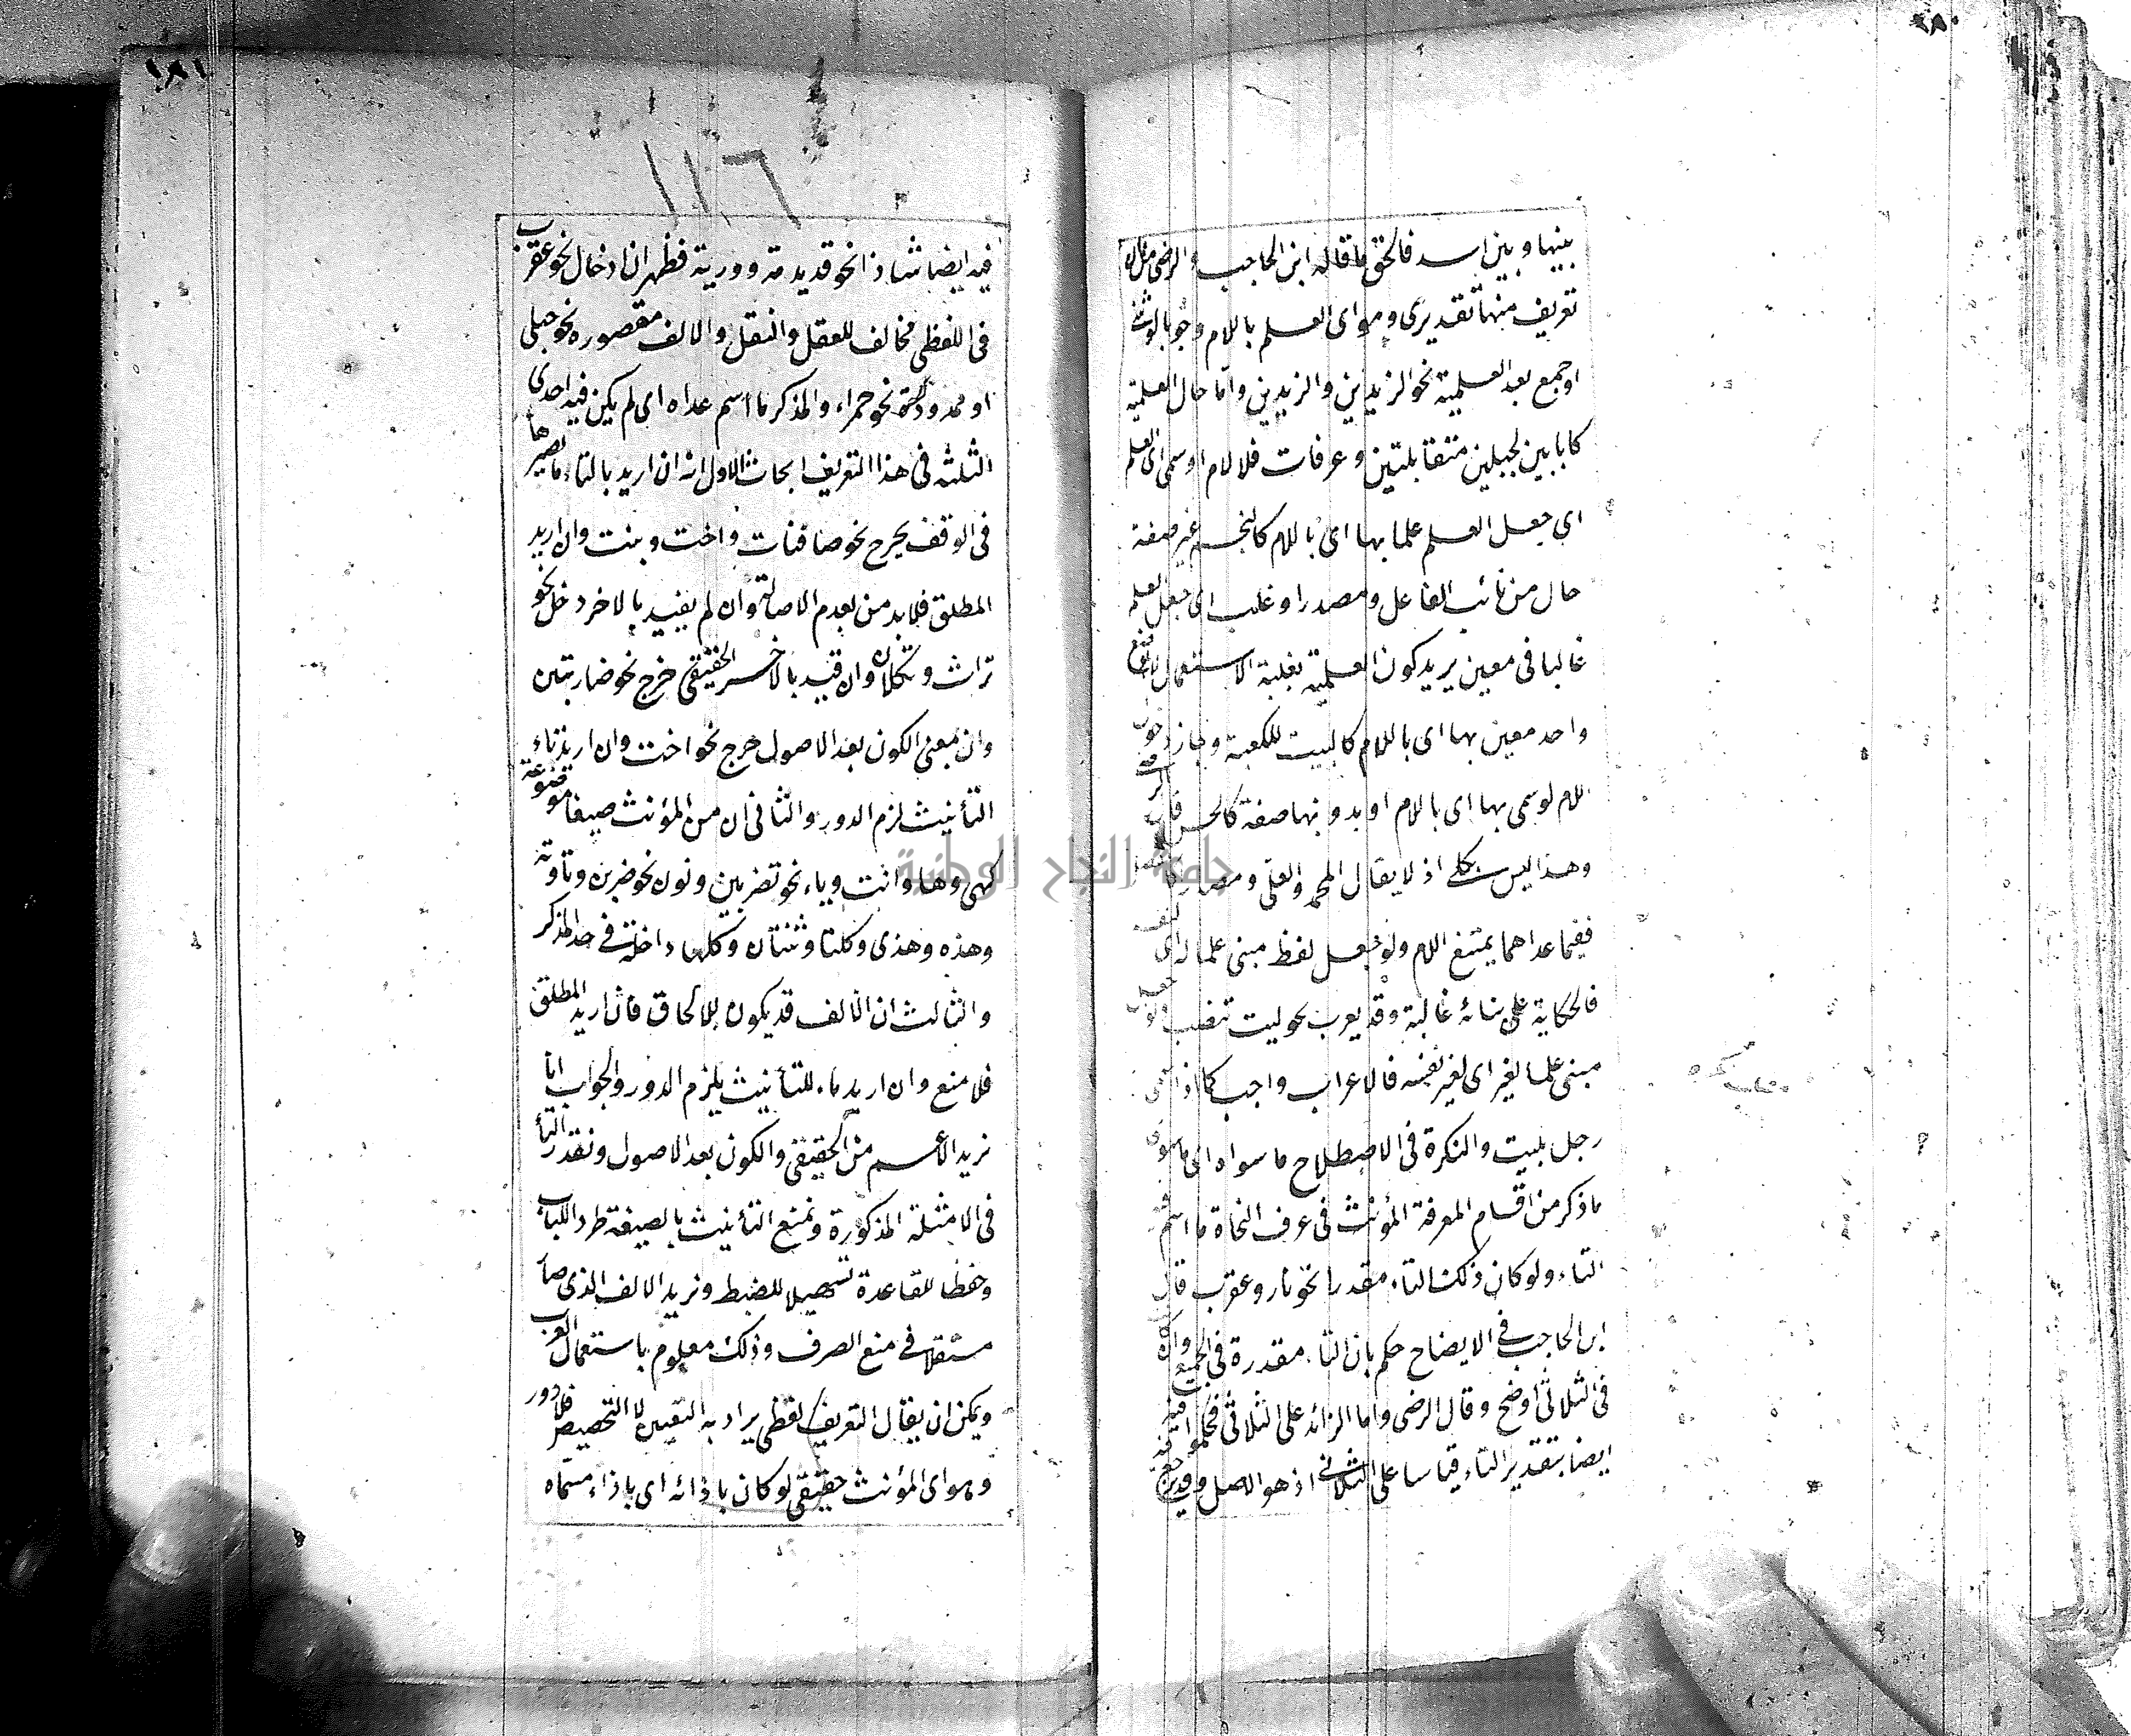 ٢٨٠
بينها وبين اسد فالحق ما قاله ابن الحاجب والرضى من ان
تعريف منهما تقديرى وهو اى العلم باللام وجوبا لو ثنى
او جمع بعد العلمية نحو الزيدين والزيدين واما حال العلمية
كابانين لجبلين متقابلتين وعرفات فلا لام او سمى اى العلم
اى جعل العلم علما بها اى باللام كالنجم غير صفة
حال من نائب الفاعل ومصدرا وغلب اى جعل العلم
غالبا فى معين يريد كون العلمية بغلبة الاستعمال
واحد معين بها اى باللام كالبيت للكعبة وجاز
اللام لو سمى بها اى باللام او بدونها صفة كالحسن
وهذا ليس بكلى اذ لا يقال المحمد والعلى ومصدرا
ففيما عداهما يمتنع اللام ولو جعل لفظ مبنى علما له اى
فالحكاية على بنائه غالبة وقد يعرب نحو ليت تنصب
مبنى علما لغير اى لغير نفسه فالاعراب واجب كما اذا سمى
رجل بليت والنكرة فى الاصطلاح ما سواه اى ما سوى
ما ذكر من اقسام المعرفة المؤنث فى عرف النحاة ما اسم
التاء ولو كان ذلك التاء مقدرا نحو نار وعقرب قال
ابن الحاجب فى الايضاح حكم بان التاء مقدرة فى الجميع
فى الثلاثى اوضح وقال الرضى واما الزائد على الثلاثى فحكموا فيه
ايضا بتقدير التاء قياسا على الثلاثى اذ هو الاصل وقد
١٨١
١١٦
فيه ايضا شاذا نحو قديديمة ووريئة فظهر ان ادخال نحو عقرب
فى اللفظى مخالف للعقل والنقل والالف مقصورة نحو حبلى
او ممدودة نحو حمراء والمذكر ما اسم عداه اى لم يكن فيه احدى
الثلثة فى هذا التعريف ابحاث الاول انه ان اريد بالتاء ما يصير ها
فى الوقف يخرج نحو صافنات واخت وبنت وان اريد
المطلق فلا بد من بعدم الاصالة وان لم يقيد بالاخر دخل نحو
تراث وتكلان وان قيد بالاخر الحقيقى خرج نحو ضاربتين
وان بمعنى الكون بعد الاصول خرج نحو اخت وان اريد تاء
التأنيث لزم الدور والثانى ان من المؤنث صيغا موضوعة
كهى وها وانت وياء نحو تضربين ونون نحو ضربن وتا وته
وهذه وهذى وكلتا وثنتان وكلها داخلة فى حد المذكر
والثالث ان الالف قد يكون للالحاق فان اريد المطلق
فلا منع وان اريد ما للتأنيث يلزم الدور والجواب انا
نريد الاعم من الحقيقى والكون بعد الاصول ونقدر التاء
فى الامثلة المذكورة ونمنع التأنيث بالصيغة طردا للباب
وحفظا للقاعدة تسهيلا للضبط ونريد الالف الذى صار
مستقلا فى منع الصرف وذلك معلوم باستعمال العرب
ويمكن ان يقال التعريف لفظى يراد به التعيين لا التحصيل فلا دور
وهو اى المؤنث حقيقى لو كان بازائه اى بازاء مسماه
جامعة النجاح الوطنية